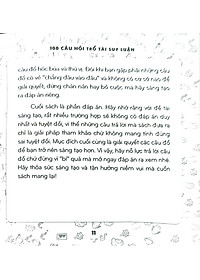 100 CÂU HỎI TRỔ TÀI SUY LUẬN
câu đố hóc búa và thú vị. Đôi khi bạn gặp phải những câu
đố có vẻ "chẳng đâu vào đâu" và không có cơ sở nào để
giải quyết, đừng chán nản hay bỏ cuộc mà hãy sáng tạo
ra đáp án riêng.
Cuối sách là phần đáp án. Hãy nhớ rằng với đề tài
sáng tạo, rất nhiều trường hợp sẽ không có đáp án duy
nhất và tuyệt đối, vì thế những câu trả lời mà sách đưa ra
chỉ là giải pháp tham khảo chứ không mang tính đúng
sai tuyệt đối. Mục đích cuối cùng là giải quyết các câu đố
để bạn trở nên sáng tạo hơn. Vì vậy, hãy nỗ lực trả lời câu
đố chứ đừng vì "bí" quá mà mở ngay đáp án ra xem nhé.
Hãy thỏa sức sáng tạo và tận hưởng niềm vui mà cuốn
sách mang lại!
11